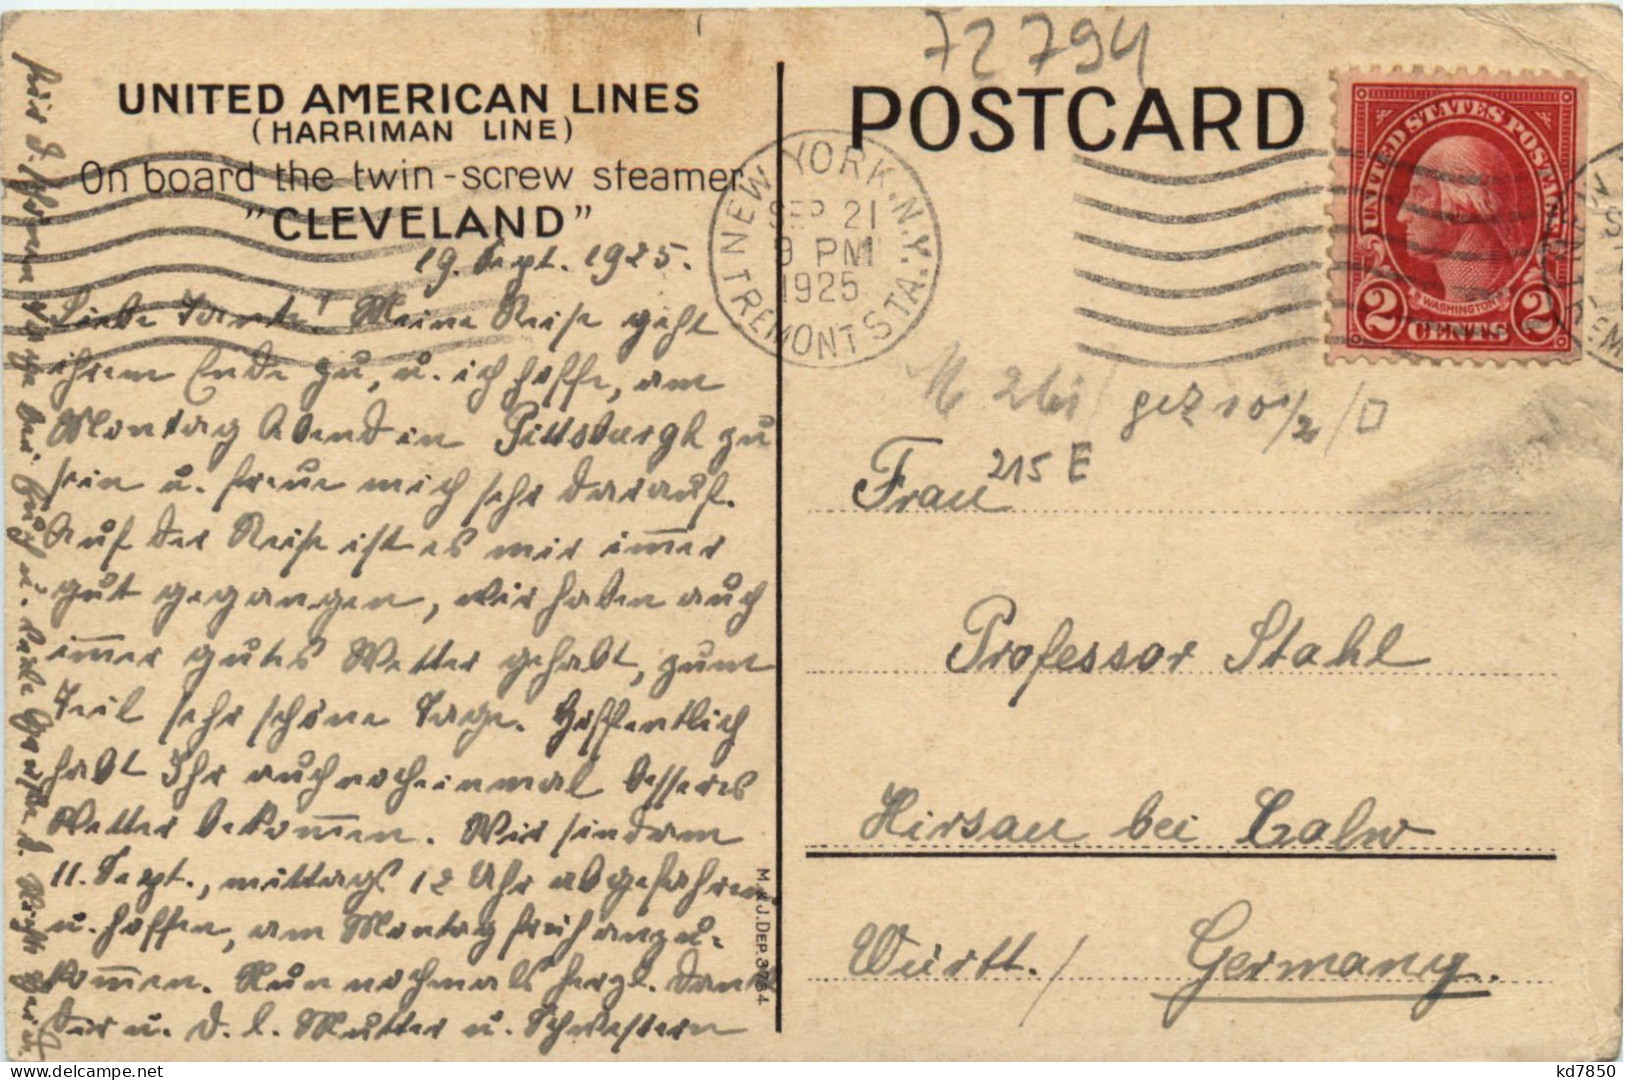 72794
UNITED AMERICAN LINES
(HARRIMAN LINE)
On board the twin-screw steamer
"CLEVELAND"
19. Sept. 1925.
Liebe Tante! Meine Reise geht
ihrem Ende zu, u. ich hoffe, am
Montag Abend in Pittsburgh zu
sein u. freue mich sehr darauf.
Auf der Reise ist es mir im̅er
gut gegangen, wir haben auch
im̅er gutes Wetter gehabt, zum
Teil sehr schöne Tage. Hoffentlich
habt Ihr auch noch einmal besseres
Wetter bekom̅en. Wir sind am
11. Sept., mittags 12 Uhr abgefahren
u. hoffen, am Montag früh anzu-
kom̅en. Nun nochmals herzl. Dank
Dir u. d. l. Mutter u. Schwestern
für d. schönen Tage bei Euch u. viele Grüße
POSTCARD
NEW YORK, N.Y.
SEP 21
9 PM
1925
TREMONT STA.
UNITED STATES POSTAGE
WASHINGTON
2 CENTS 2
gez 10 1/2 / O
215 E
Frau
Professor Stahl
Hirsau bei Calw
Württ. / Germany.
M. & J. DEP. 3734
kd7850